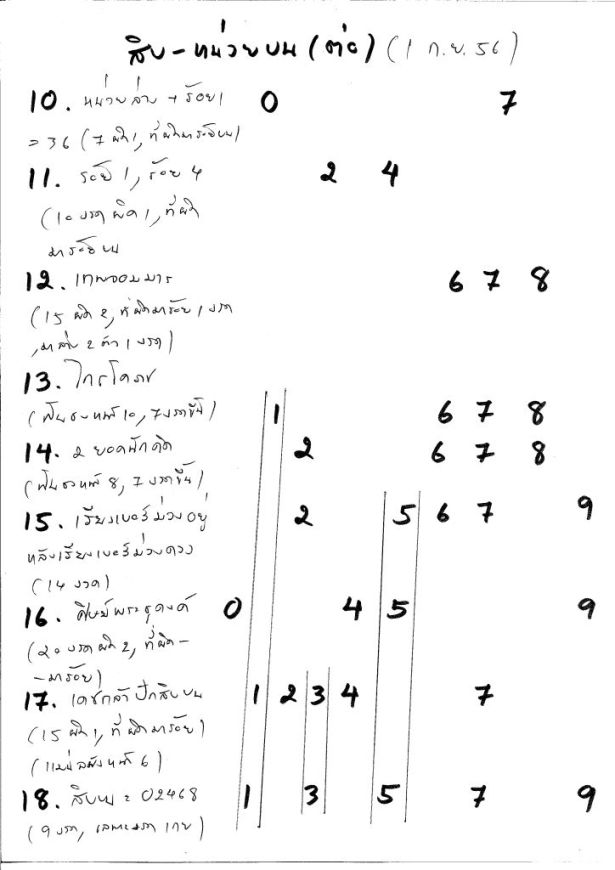 สิบ - หน่วยบน (ต่อ) (1 ก.ย. 56)
10. หน่วยล่าง + ร้อย 1 0 7
= 36 (7 ผิด 1, ที่ผิดมาร้อยบน)
11. ร้อย 4 2 4
(10 งวด ผิด 1, ที่ผิด
มาร้อยบน
12. เทพจอมมาร 6 7 8
(15 ผิด 2, ที่ผิดมาร้อย 1 งวด
, มาล่าง 2 ตัว 1 งวด)
13. ไกรโคภช
(ฟันธงหน้า 10, 7 งวดขึ้น) 1 6 7 8
14. 2 ยอดนักคิด 2 6 7 8
(ฟันธงหน้า 8, 7 งวดขึ้น)
15. เรียงเบอร์ม่วงอยู่ 2 5 6 7 9
หลังเรียงเบอร์ม่วงดวง
(14 งวด)
16. ศิษย์พระธุดงค์ 0 4 5 9
(20 งวด ผิด 2, ที่ผิด -
- มาร้อย)
17. เดชกล้า ปักสิบบน 1 2 3 4 7
(15 ผิด 1, ที่ผิดมาร้อย)
(หน้า 6)
18. สิบบน = 02468 1 3 5 7 9
(9 งวด,